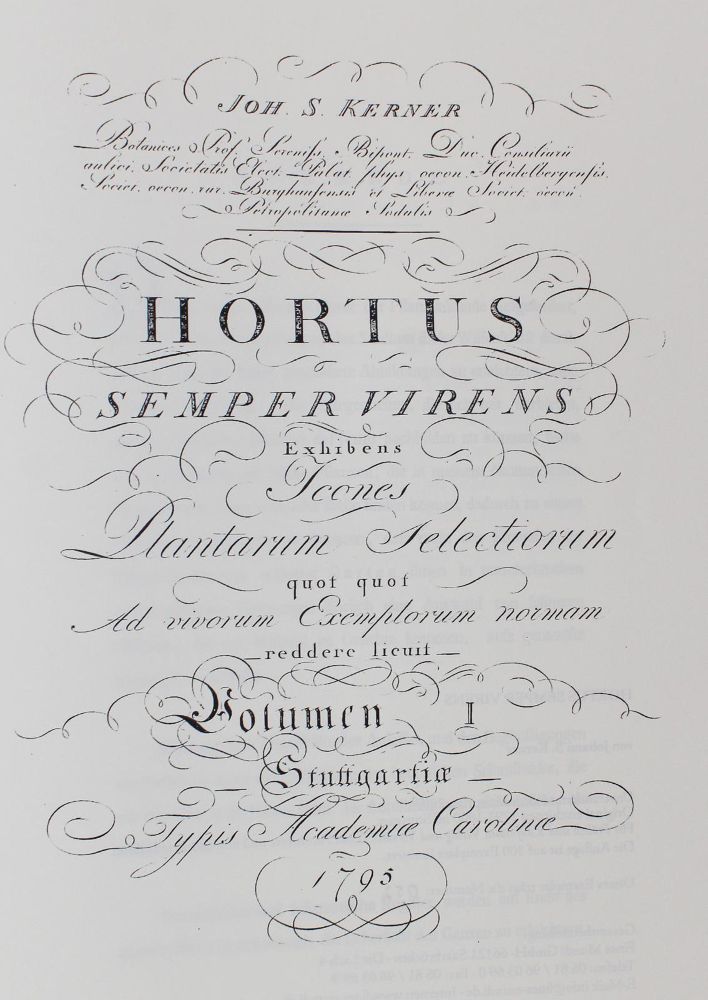 JOH. S. KERNER
Botanices Prof. Sereniss. Bipont. Duc. Consiliarii
aulici, Societatis Elect. Palat. phys. oecon. Heidelbergensis,
Societ. oecon. rur. Burghausensis et Liberae Societ. oecon.
Petropolitanae Sodalis
HORTUS
SEMPERVIRENS
Exhibens
Icones
Plantarum Selectiorum
quot quot
Ad vivorum Exemplorum normam
reddere licuit
Volumen I
Stuttgartiæ
Typis Academiæ Carolinæ
1795